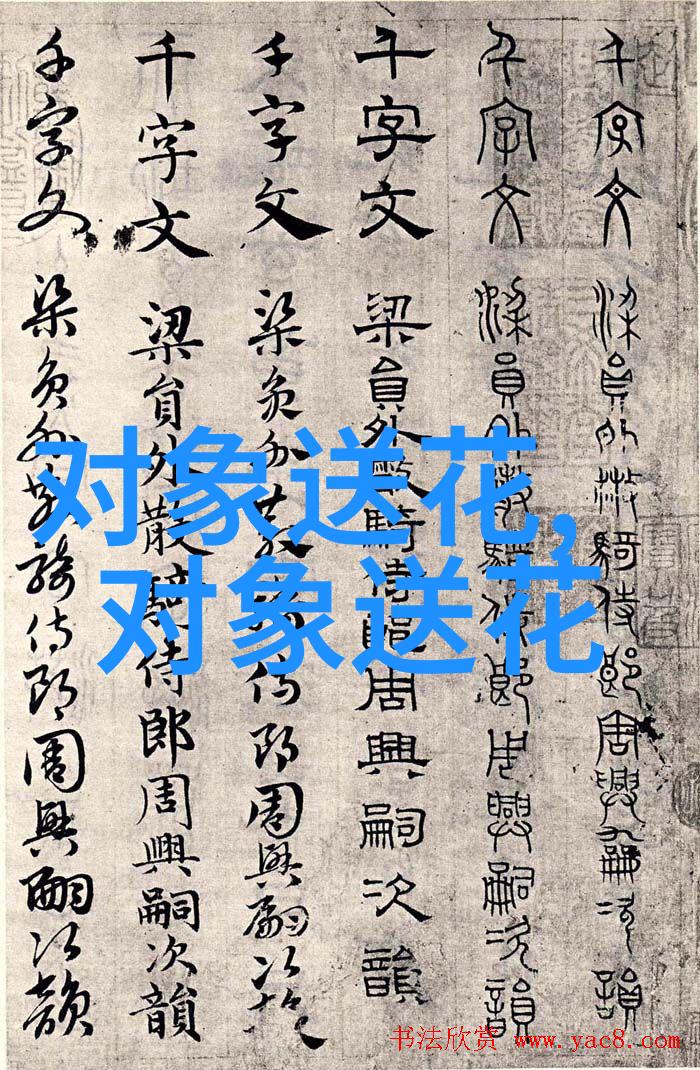 千字文 梁員外散騎侍郎周興嗣次韻
千字文 梁員外散騎侍郎周興嗣次韻
千字文 梁員外散騎侍郎周興嗣次韻
千字文 梁員外散騎侍郎周興嗣次韻
千字文 梁員外散騎侍郎周興嗣次韻
千字文 梁員外散騎侍郎周興嗣次韻
对象送花,
对象送花
书法欣赏 www.yac8.com